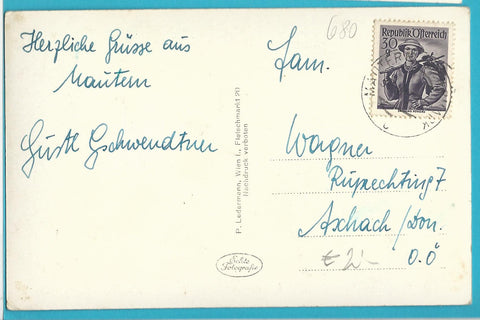 Herzliche Grüsse aus
Mautern
Gustl Gschwendtner
680
Republik Österreich
30
g
Fam.
Wagner
Rupprechting 7
Aschach/Don.
O.Ö
€ 2,-
P. Ledermann, Wien I., Fleischmarkt 20
Nachdruck verboten
Echte
Fotografie